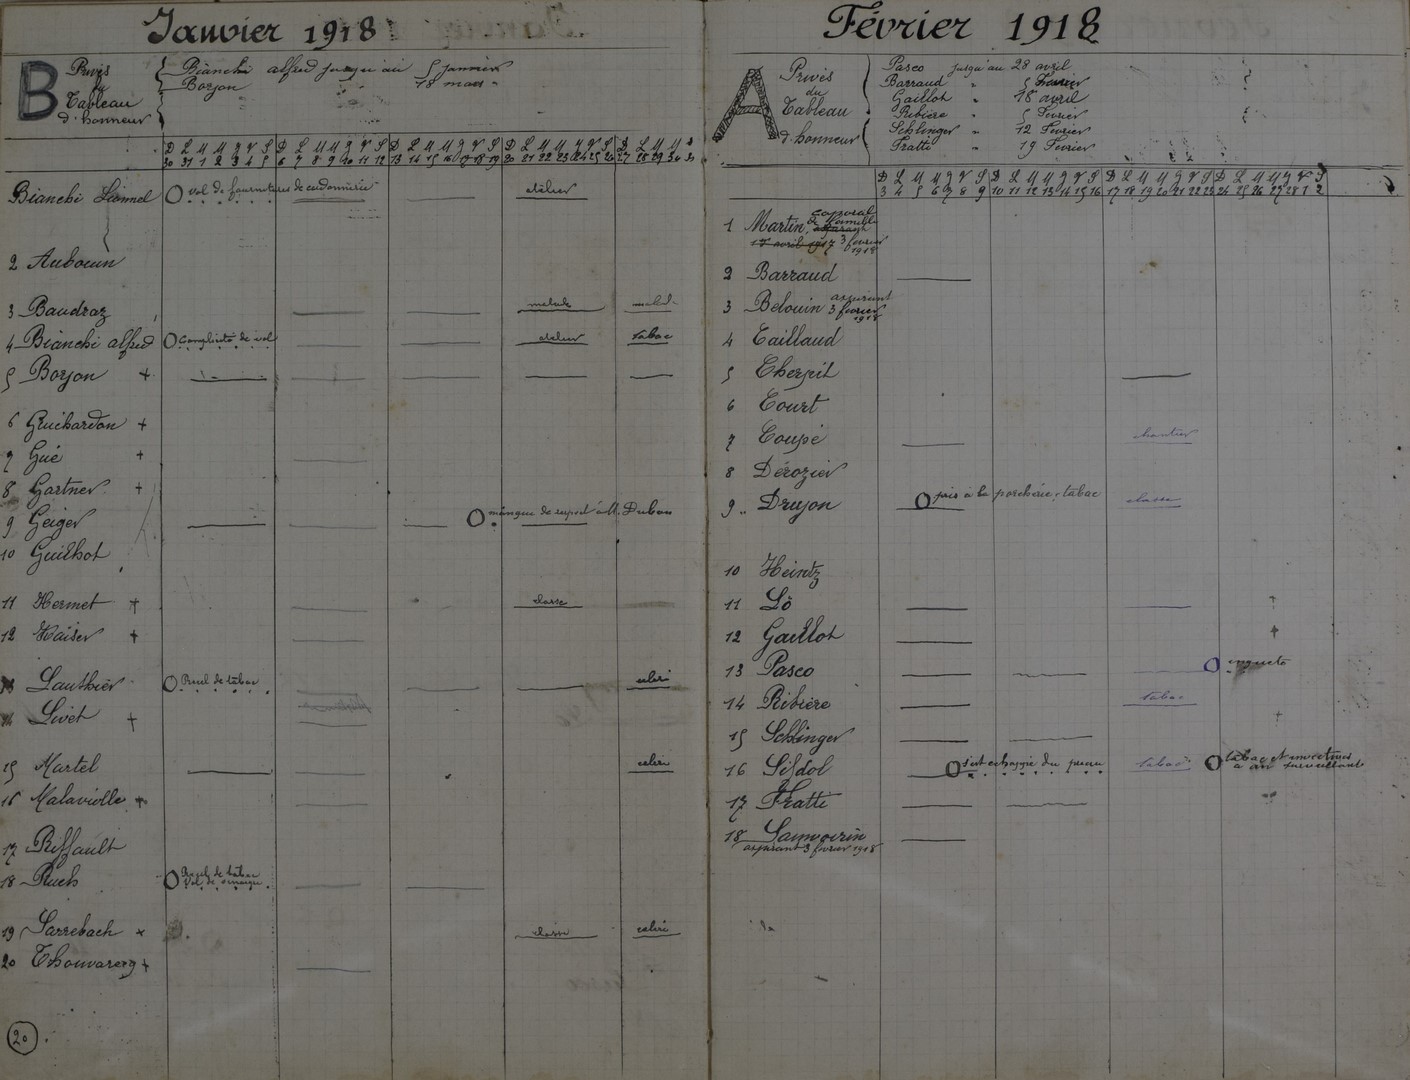 Janvier 1918
B
Privés
du
Tableau
d'honneur
Bianchi alfred jusqu'au 5 janvier
Boyon 18 mars
D L M M J V S D L M M J V S D L M M J V S D L M M J V S D L M M J
30 31 1 2 3 4 5 6 7 8 9 10 11 12 13 14 15 16 17 18 19 20 21 22 23 24 25 26 27 28 29 30 31
Bianchi Lionnel vol de fournitures de cordonnerie atelier
2 Auboeun
3 Baudraz malade malad.
4 Bianchi alfred Complicité de vol atelier tabac
5 Boyon +
6 Guichardon +
7 Gué +
8 Gartner +
9 Geiger manque de respect à M. Dubau
10 Guilhot
11 Hermet + classe
12 Kaiser +
13 Lauthier Recel de tabac céleri
14 Livet +
15 Martel céleri
16 Malavielle +
17 Riffault
18 Ruch Recel de tabac
Vol de
19 Sarrebach + classe céleri
20 Thouvarecq +
20
Février 1918
A
Privés
du
Tableau
d'honneur
Pasco jusqu'au 28 avril
Barraud " 5 Février
Gaillot " 18 avril
Ribière 5 Février
Schlinger " 12 Février
Fratti " 19 Février
D L M M J V S D L M M J V S D L M M J V S D L M M J V S
3 4 5 6 7 8 9 10 11 12 13 14 15 16 17 18 19 20 21 22 23 24 25 26 27 28 1 2
1 Martin caporal
de famille
17 avril 1917 3 février
1918
2 Barraud
3 Belouin aspirant
3 février
1918
4 Caillaud
5 Cherpit
6 Court
7 Coupé chantier
8 Dérozier
9 Drujon pris à la porcherie, tabac classe
10 Heintz
11 Lô
12 Gaillot
13 Pasco
14 Ribière tabac
15 Schlinger
16 Sildol s'est échappé du tabac tabac et invectives
à un surveillant
17 Fratti
18 Sauvoirin
aspirant 3 février 1918